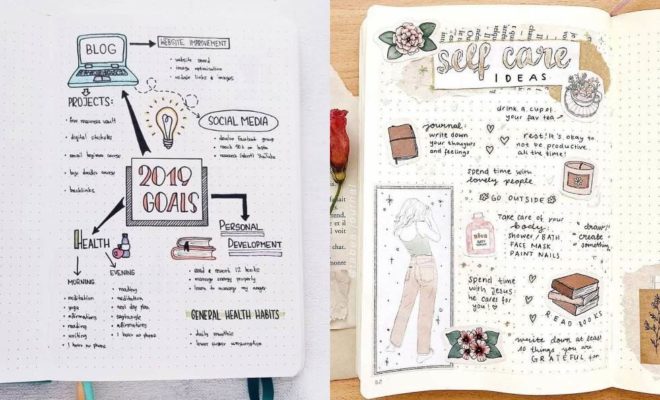 BLOG
WEBSITE IMPROVEMENT
website speed
image optimisation
update links & images
PROJECTS:
free resource vault
digital stickers
email beginner course
bujo doodles course
backlinks
SOCIAL MEDIA
develop Facebook group
reach 50k on
research (start) YouTube
2019
GOALS
PERSONAL
DEVELOPMENT
read & review 12 books
manage energy properly
learn to manage my anger
HEALTH
MORNING
meditation
yoga
affirmations
reading
writing
1 hour no phone
EVENING
reading
meditation
next day plan
affirmations
1 hour no phone
GENERAL HEALTH HABITS
daily smoothie
lower sugar consumption
self care
IDEAS
drink a cup of
your fav tea
journal:
write down
your thoughts
and feelings
rest! It's okay to
not be productive
all the time!
spend time with
lovely people
GO OUTSIDE
Take care of your
body:
SHOWER / BATH
FACE MASK
PAINT NAILS
"draw"
"create"
something
spend time
with Jesus:
he cares for
you!
READ BOOKS
write down at least
10 things you are
GRATEFUL for